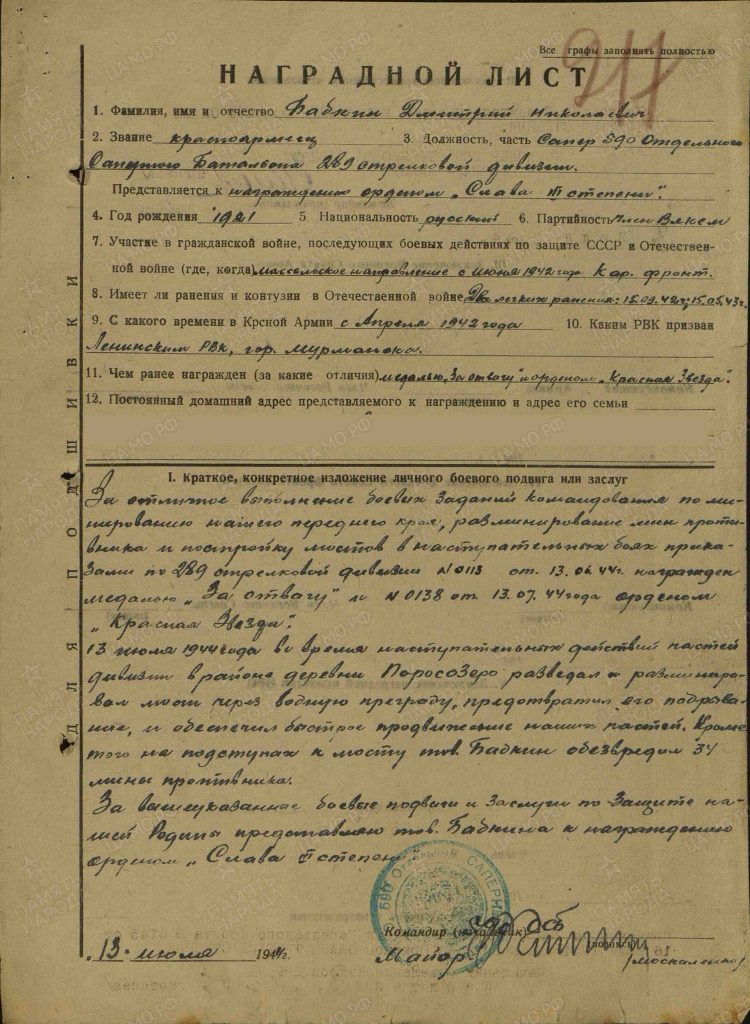 Все графы заполнять полностью
211
НАГРАДНОЙ ЛИСТ
1. Фамилия, имя и отчество Бабкин Дмитрий Николаевич
2. Звание красноармеец 3. Должность, часть Сапер 590 Отдельного
Саперного Батальона 289 стрелковой дивизии.
Представляется к награждению орденом „Слава III степени".
4. Год рождения 1921 5. Национальность русский 6. Партийность член Влксм
7. Участие в гражданской войне, последующих боевых действиях по защите СССР и Отечествен-
ной войне (где, когда) массельское направление с июня 1942 года Кар. фронт.
8. Имеет ли ранения и контузии в Отечественной войне Два легких ранения: 15.09.42г; 15.05.43г.
9. С какого времени в Крсной Армии с Апреля 1942 года 10. Каким РВК призван
Ленинским РВК, гор. Мурманска.
11. Чем ранее награжден (за какие отличия) медалью „За отвагу" и орденом „Красная Звезда".
12. Постоянный домашний адрес представляемого к награждению и адрес его семьи
ДЛЯ ПОДШИВКИ
I. Краткое, конкретное изложение личного боевого подвига или заслуг
За отличное выполнение боевых заданий командования по ми-
нированию нашего переднего края, разминирование мин проти-
вника и постройку мостов в наступательных боях прика-
зами по 289 стрелковой дивизии N 0113 от. 13.06.44г. награжден
медалью „За отвагу" и N 0138 от. 13.07.44 года орденом
„Красная Звезда".
13 июля 1944 года во время наступательных действий частей
дивизии в районе деревни Поросозеро разведал и разминиро-
вал мост через водную преграду, предотвратил его подрыва-
ние, и обеспечил быстрое продвижение наших частей. Кроме
того на подступах к мосту тов. Бабкин обезвредил 34
мины противника.
За вышеуказанные боевые подвиги и заслуги по защите на-
шей Родины представляю тов. Бабкина к награждению
орденом „Слава III степени"
590 ОТДЕЛЬНЫЙ САПЕРНЫЙ
Командир (начальник) 590 осб
Майор (подпись)
(Москаленко)
13. июля 1944г.
ЦАМО.РФ